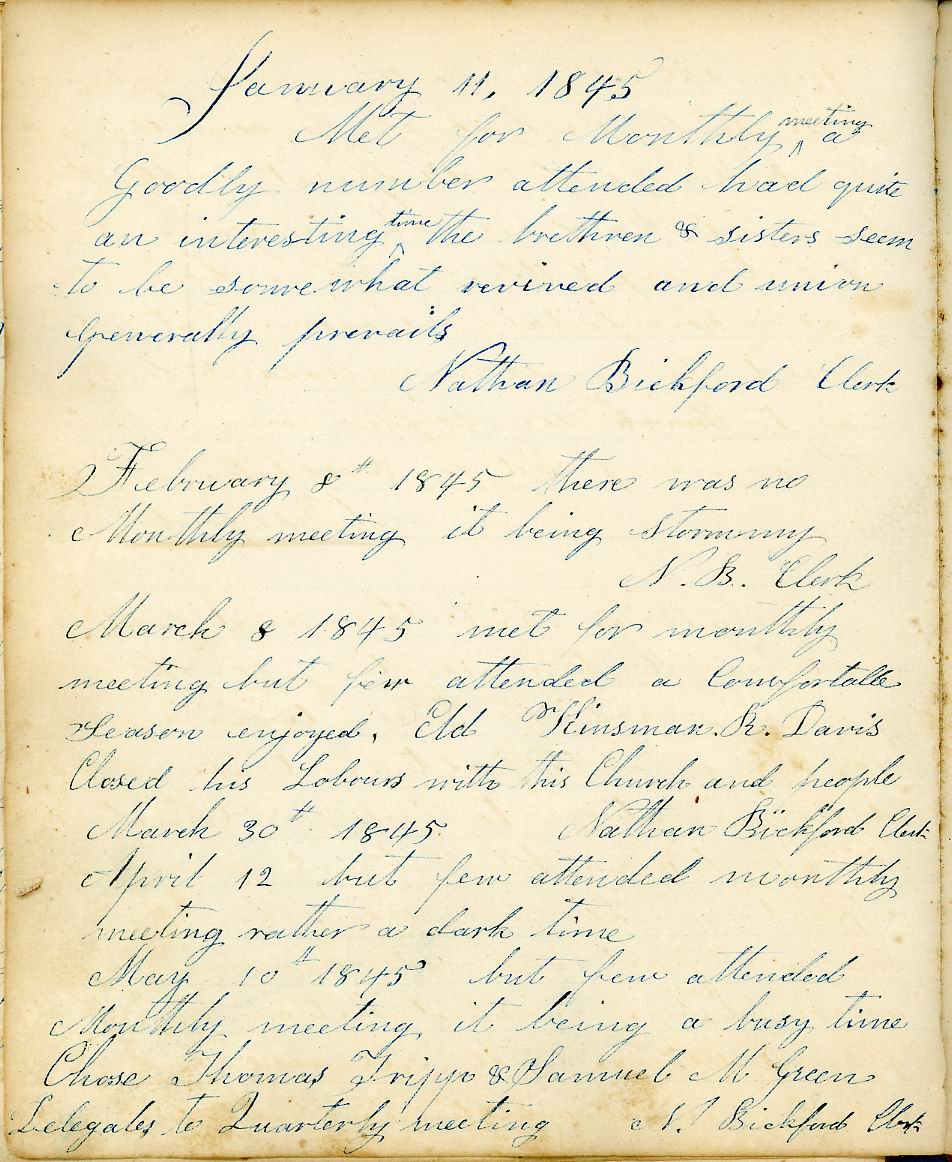 January 11, 1845
Met for Monthly meeting a
Goodly number attended had quite
an interesting time the brethren & sisters seem
to be somewhat revived and union
generally prevails
Nathan Bickford Clerk
February 8th 1845 there was no
Monthly meeting it being stormmy
N. B. Clerk
March 8 1845 met for monthly
meeting but few attended a Comfortable
season enjoyed, Eld Kinsman. R. Davis
Closed his Labours with this Church and people
March 30th 1845 Nathan Bickford Clerk
April 12 but few attended monthly
meeting rather a dark time
May 10th 1845 but few attended
Monthly meeting it being a busy time
Chose Thomas Tripp & Samuel M Green
Delegates to Quarterly meeting N. Bickford Clerk